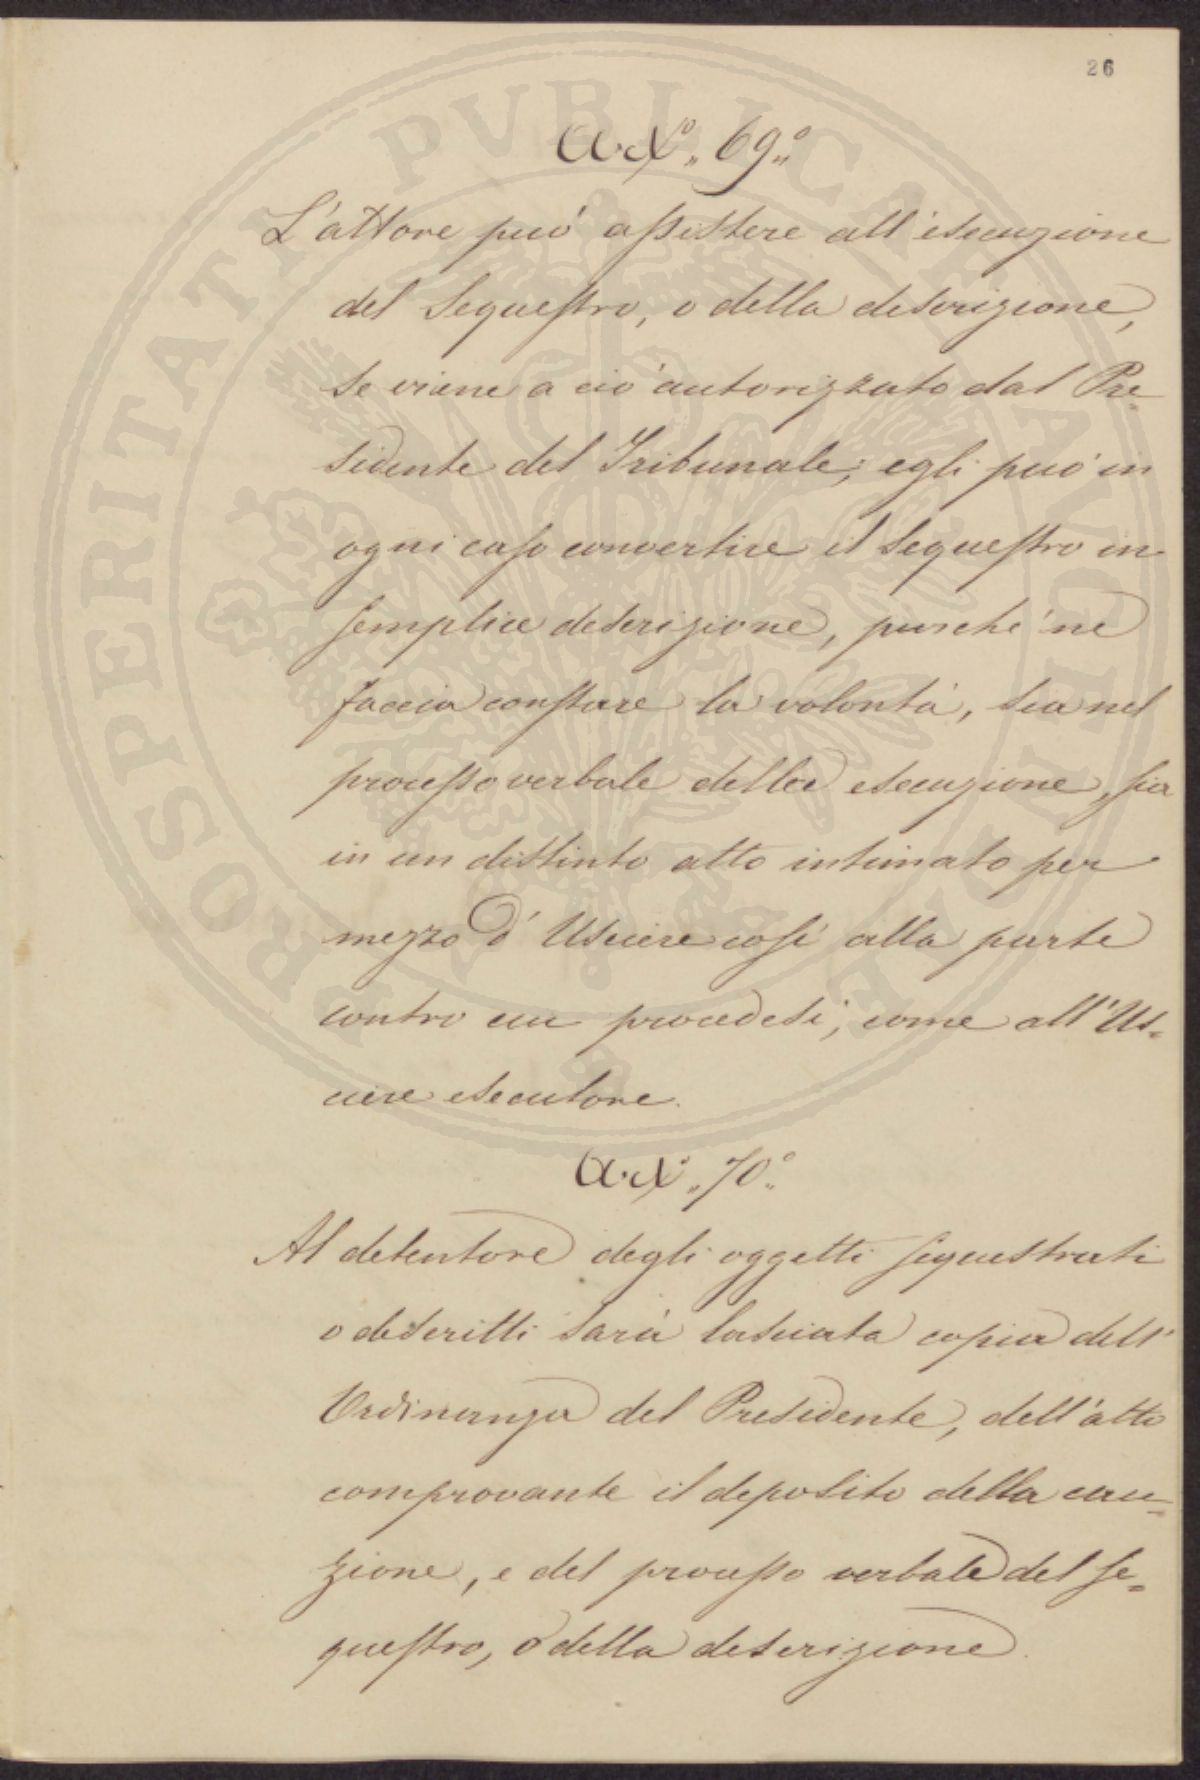 26
Art.° 69.°
L'attore può assistere all'esecuzione
del sequestro, o della descrizione,
se viene a ciò autorizzato dal Pre-
sidente del Tribunale; egli può in
ogni caso convertire il sequestro in
semplice descrizione, purchè ne
faccia constare la volontà, sia nel
processo verbale della esecuzione, sia
in un distinto atto intimato per
mezzo d'Usciere così alla parte
contro cui procedesi, come all'Us-
ciere esecutore.
Art.° 70.°
Al detentore degli oggetti sequestrati
o descritti sarà lasciata copia dell'
Ordinanza del Presidente, dell'atto
comprovante il deposito della cau-
zione, e del processo verbale del se-
questro, o della descrizione.
PROSPERITATI PVBLICAE AVGENDAE